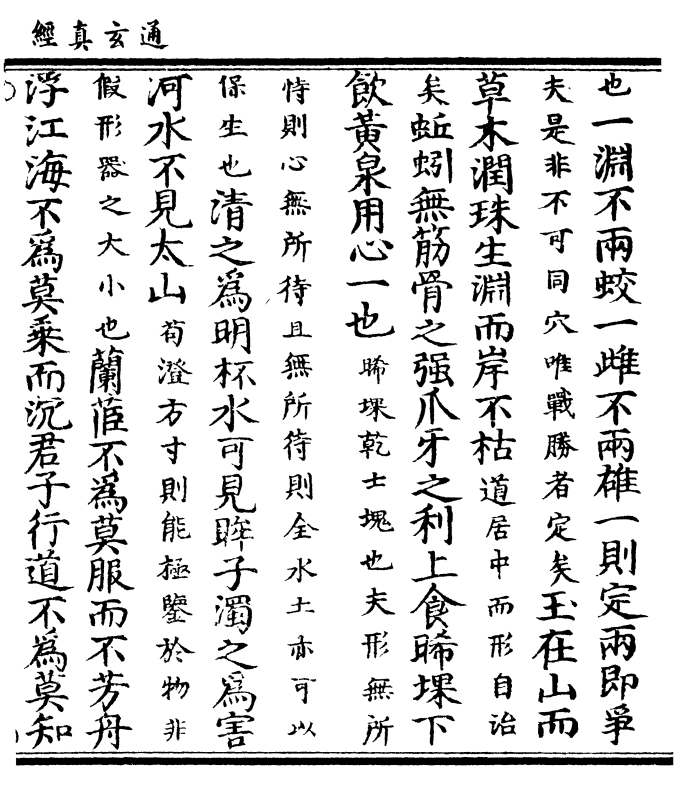 通玄真經
也一淵不兩蛟一雌不兩雄一則定兩即爭
夫是非不可同穴唯戰勝者定矣玉在山而
草木潤珠生淵而岸不枯道居中而形自治
矣蚯蚓無筋骨之强爪牙之利上食晞堁下
飲黃泉用心一也晞堁乾土塊也夫形無所
恃則心無所待且無所待則全水土亦可以
保生也清之爲明杯水可見眸子濁之爲害
河水不見太山苟澄方寸則能極鑒於物非
假形器之大小也蘭茝不爲莫服而不芳舟
浮江海不爲莫乗而沉君子行道不爲莫知